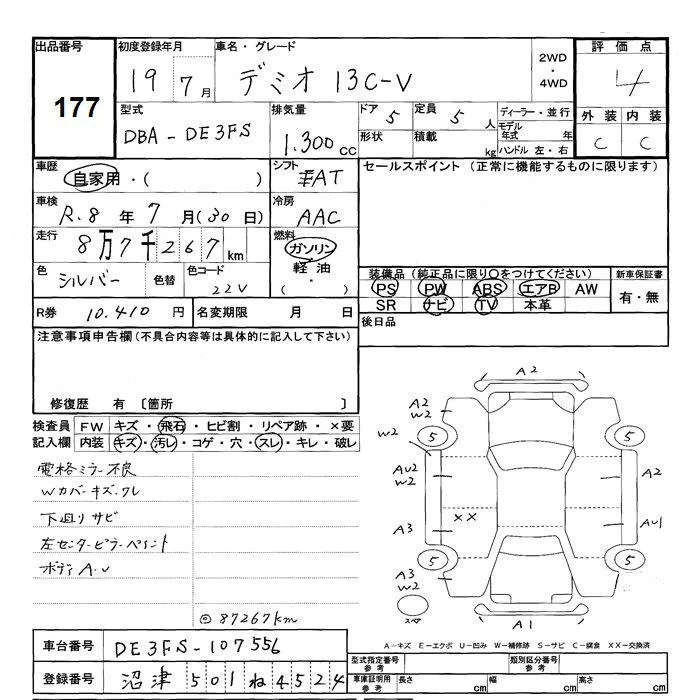 出品番号 初度登録年月 車名・グレード 2WD・4WD 評価点
177 19 7月 デミオ 13C-V 4
型式 排気量 ドア 5 定員 5人 ディーラー・並行 外装 内装
DBA-DE3FS 1.300cc 形状 積載 kg モデル年式 年 ハンドル 左・右 C C
車歴 自家用・( ) シフト FAT セールスポイント (正常に機能するものに限ります)
車検 R.8年 7月(30日) 冷房 AAC
走行 8万7千267km 燃料 ガソリン 軽油 (・)
色 シルバー 色替 色コード 22V
装備品 (純正品に限り○をつけてください) 新車保証書
PS PW ABS エアB AW 有・無
SR ナビ TV 本革
R券 10.410円 名変期限 月 日 後日品
注意事項申告欄(不具合内容等は具体的に記入して下さい)
修復歴 有 〔箇所 〕
検査員記入欄 FW キズ・飛石・ヒビ割・リペア跡・×要
内装 キズ・汚レ・コゲ・穴・スレ・キレ・破レ
電格ミラー不良
Wカバーキズ・ワレ
下廻りサビ
左センターピラーペイント
ボディA・U
◎87267km
A2
A2
W2
5
5
W2
AU2
W2
A2
XX
A3
AU1
A3
W2
5
5
スペア
A1
A-キズ E-エクボ U-凹み W-補修跡 S-サビ C-腐食 XX-交換済
車台番号 DE3FS-107556
型式指定番号 参考 類別区分番号 参考
登録番号 沼津 501 ね 4524
車庫証明用 参考 長さ cm 幅 cm 高さ cm